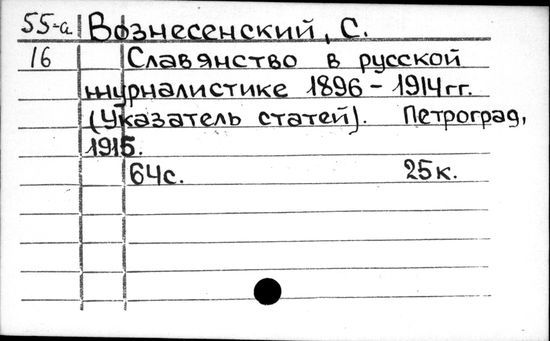 55-а Вознесенский, С.
16 Славянство в русской
журналистике 1896 - 1914 гг.
(Указатель статей). Петроград,
1915.
64с. 25к.